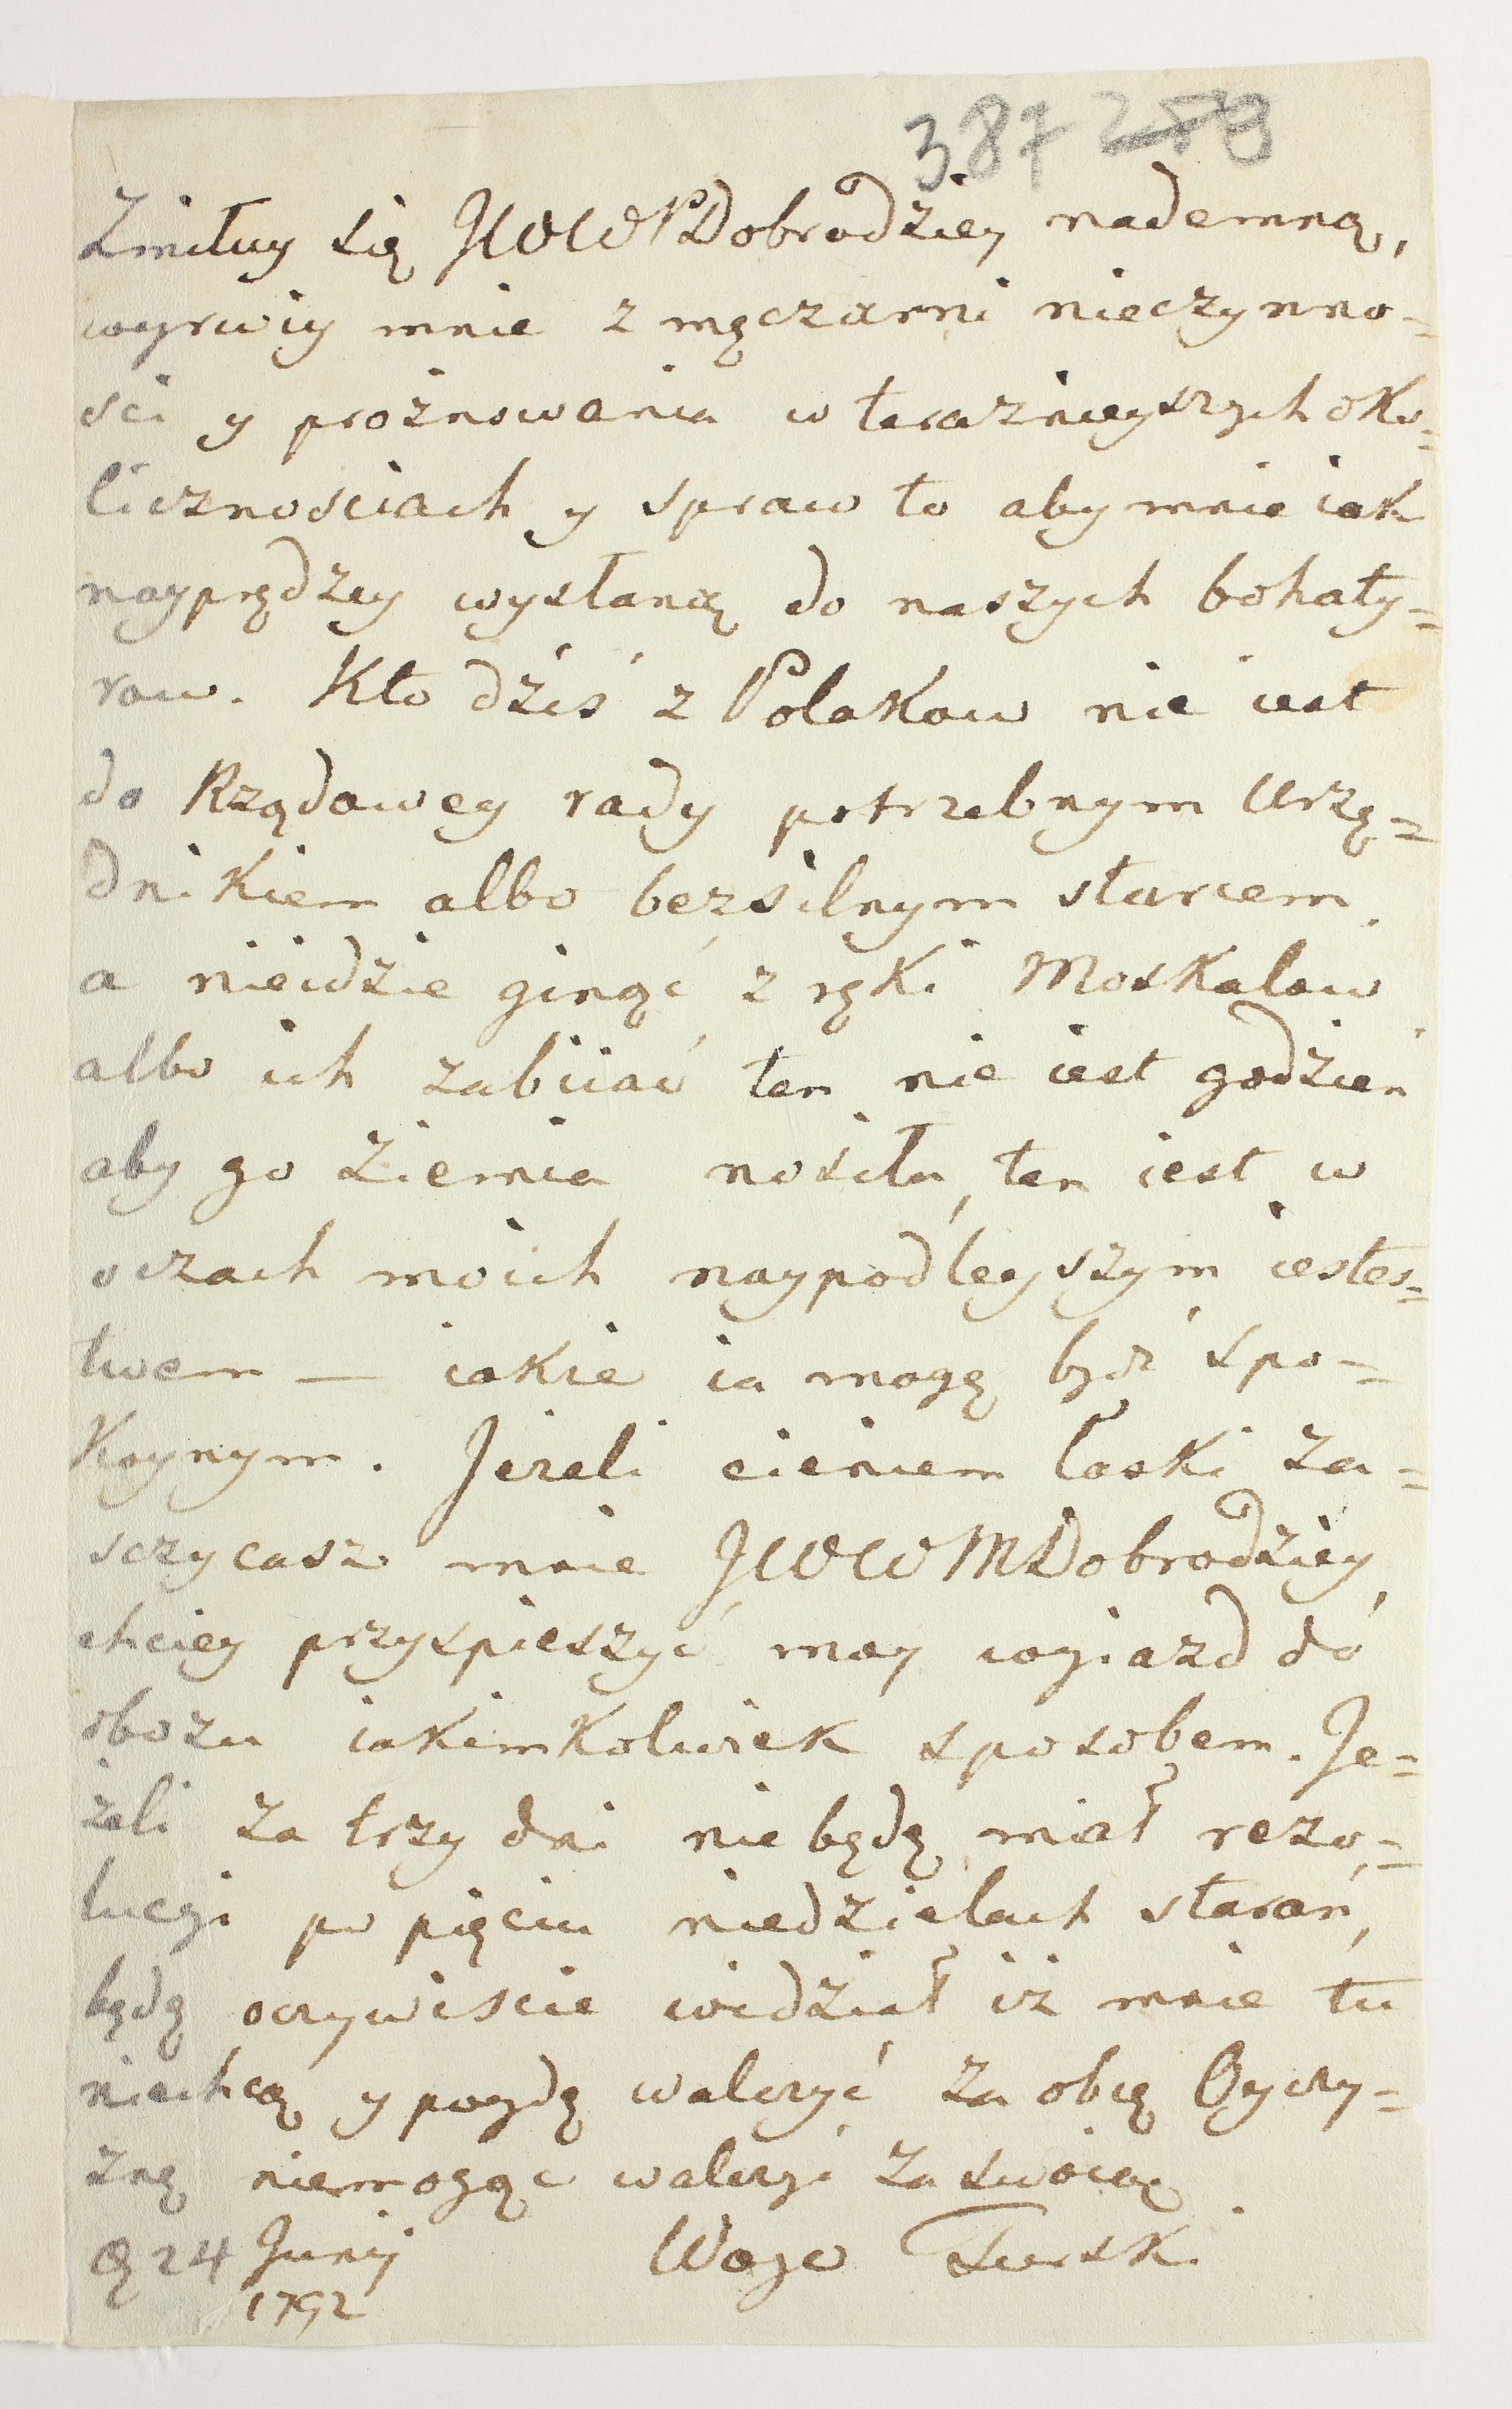 387 279
Zmiłuy się JWWPDobrodziey nademną,
wyrwiy mnie z męczarni nieczynno=
sci y prożnowania w teraznieyszych oko=
licznosciach y spraw to aby mnie iak
nayprędzey wysłaną do naszych bohaty=
row. Kto dziś z Polakow nie iest
do Rządowey rady potrzebnym Urzę=
dnikiem albo bezsilnym starcem,
a nieidzie ginąć z ręki Moskalow
albo ich zabiiać ten nie iest godzien
aby go Ziemia nosiła, ten iest w
oczach moich naypodleyszym iestes=
twem — iakie ia mogę bydź spo=
Koynym. Jezeli cieniem łaski za=
sczycasz mnie JWWMDobrodziey,
chciey przyspieszyć moy wyiazd do
obozu iakimkolwiek sposobem. Je=
żeli za trzy dni nie będę miał rezo=
lucyi po pięciu niedzielach starań,
będę oczywiscie widział iż mnie tu
niechcą y poydę walczyć za obcą Oyczy=
znę niemogąc walczyć za swoię
24 Junij Woyc Turski
1792